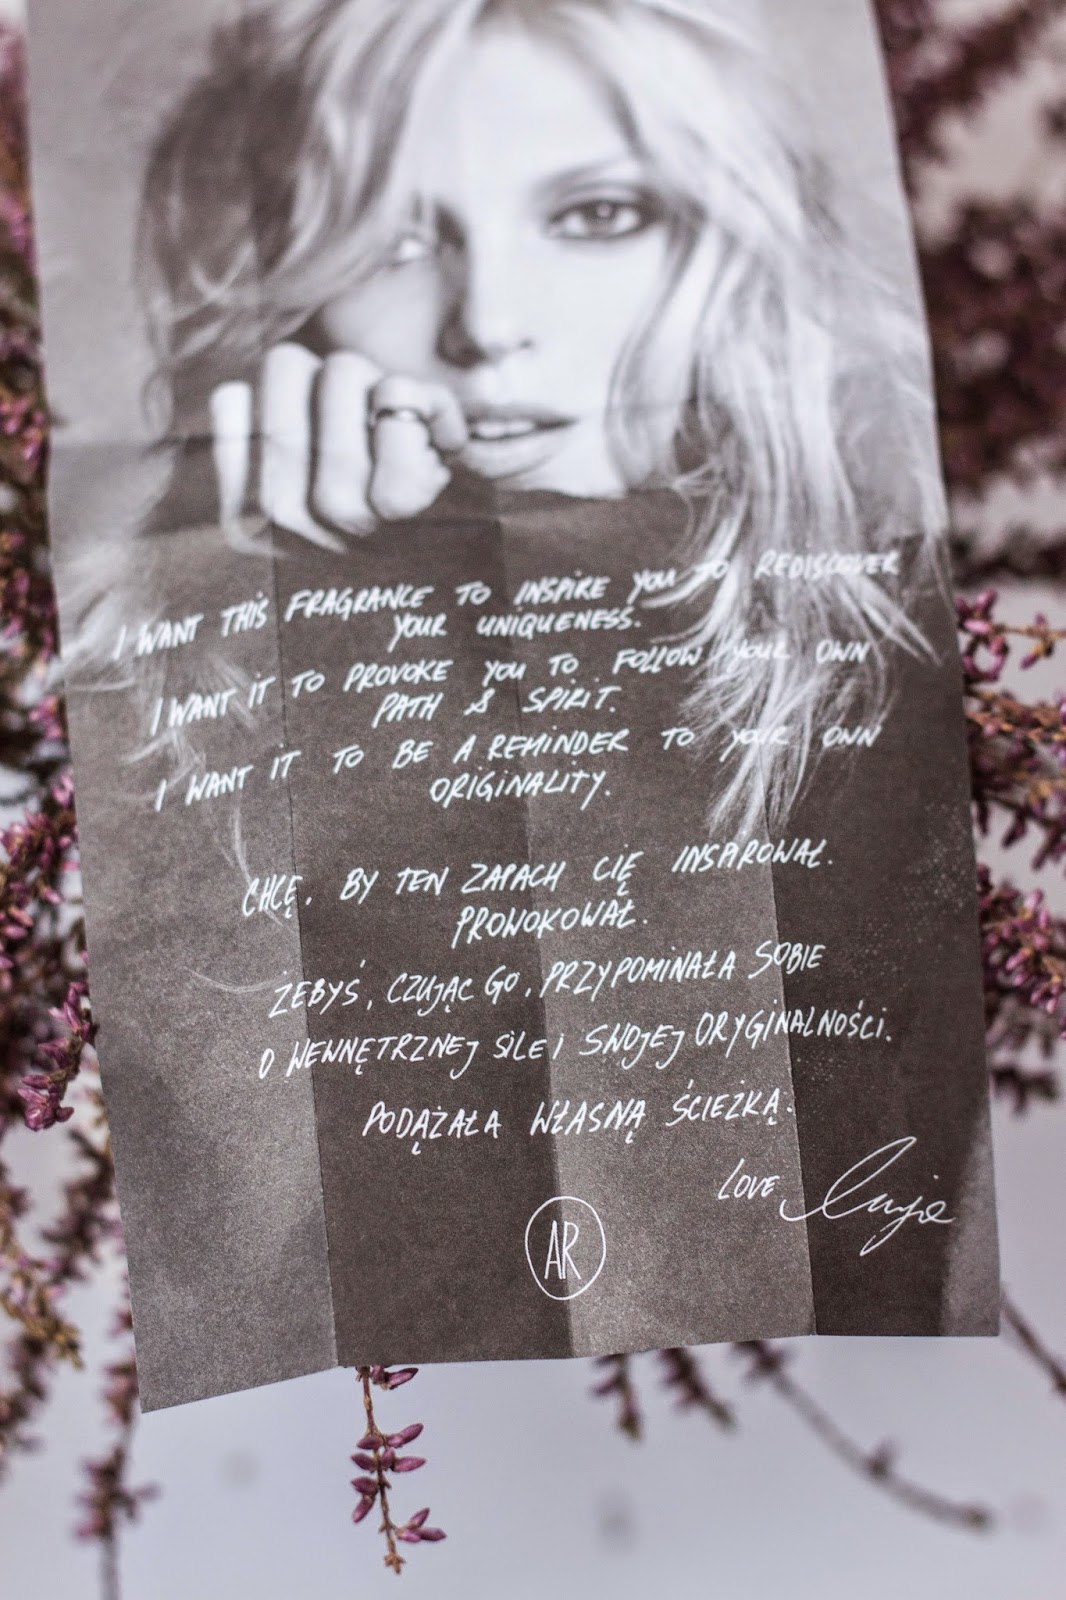 I WANT THIS FRAGRANCE TO INSPIRE YOU TO REDISCOVER
YOUR UNIQUENESS.
I WANT IT TO PROVOKE YOU TO FOLLOW YOUR OWN
PATH & SPIRIT.
I WANT IT TO BE A REMINDER TO YOUR OWN
ORIGINALITY.
CHCĘ, BY TEN ZAPACH CIĘ INSPIROWAŁ.
PROWOKOWAŁ.
ŻEBYŚ, CZUJĄC GO, PRZYPOMINAŁA SOBIE
O WEWNĘTRZNEJ SILE I SWOJEJ ORYGINALNOŚCI.
PODĄŻAŁA WŁASNĄ ŚCIEŻKĄ.
LOVE Anja
AR